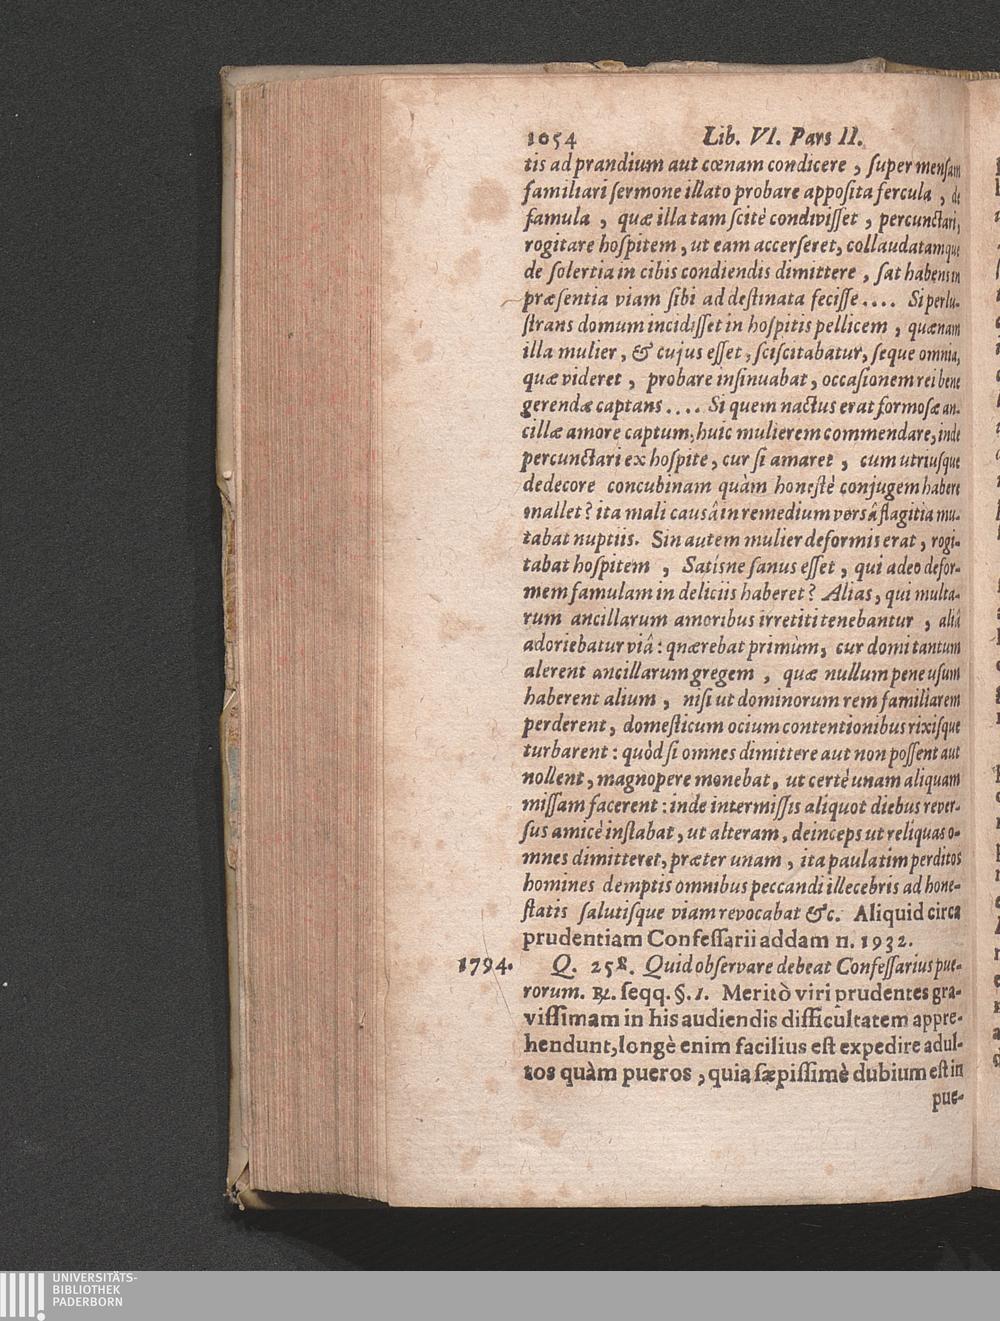 1054 Lib. VI. Pars II.
tis ad prandium aut cœnam condicere, super mensam
familiari sermone illato probare apposita fercula, de
famula, quæ illa tam scitè condivisset, percunctari,
rogitare hospitem, ut eam accerseret, collaudatamque
de solertia in cibis condiendis dimittere, sat habens in
præsentia viam sibi ad destinata fecisse.... Si perlu-
strans domum incidisset in hospitis pellicem, quænam
illa mulier, & cujus esset, sciscitabatur, seque omnia,
quæ videret, probare insinuabat, occasionem rei bene
gerendæ captans.... Si quem nactus erat formosæ an-
cillæ amore captum, huic mulierem commendare, inde
percunctari ex hospite, cur si amaret, cum utriusque
dedecore concubinam quàm honestè conjugem habere
mallet? ita mali causâ in remedium versâ flagitia mu-
tabat nuptiis. Sin autem mulier deformis erat, rogi-
tabat hospitem, Satisne sanus esset, qui adeo defor-
mem famulam in deliciis haberet? Alias, qui multa-
rum ancillarum amoribus irretiti tenebantur, aliâ
adoriebatur viâ: qnærebat primùm, cur domi tantum
alerent ancillarum gregem, quæ nullum pene usum
haberent alium, nisi ut dominorum rem familiarem
perderent, domesticum ocium contentionibus rixisque
turbarent: quòd si omnes dimittere aut non possent aut
nollent, magnopere monebat, ut certè unam aliquam
missam facerent: inde intermissis aliquot diebus rever-
sus amicè instabat, ut alteram, deinceps ut reliquas o-
mnes dimitteret, præter unam, ita paulatim perditos
homines demptis omnibus peccandi illecebris ad hone-
statis salutisque viam revocabat &c. Aliquid circa
prudentiam Confessarii addam n. 1932.
1794. Q. 258. Quid observare debeat Confessarius pue-
rorum. ℞. seqq. §. 1. Meritò viri prudentes gra-
vissimam in his audiendis difficultatem appre-
hendunt, longè enim facilius est expedire adul-
tos quàm pueros, quia sæpissimè dubium est in
pue-
UNIVERSITÄTS-
BIBLIOTHEK
PADERBORN